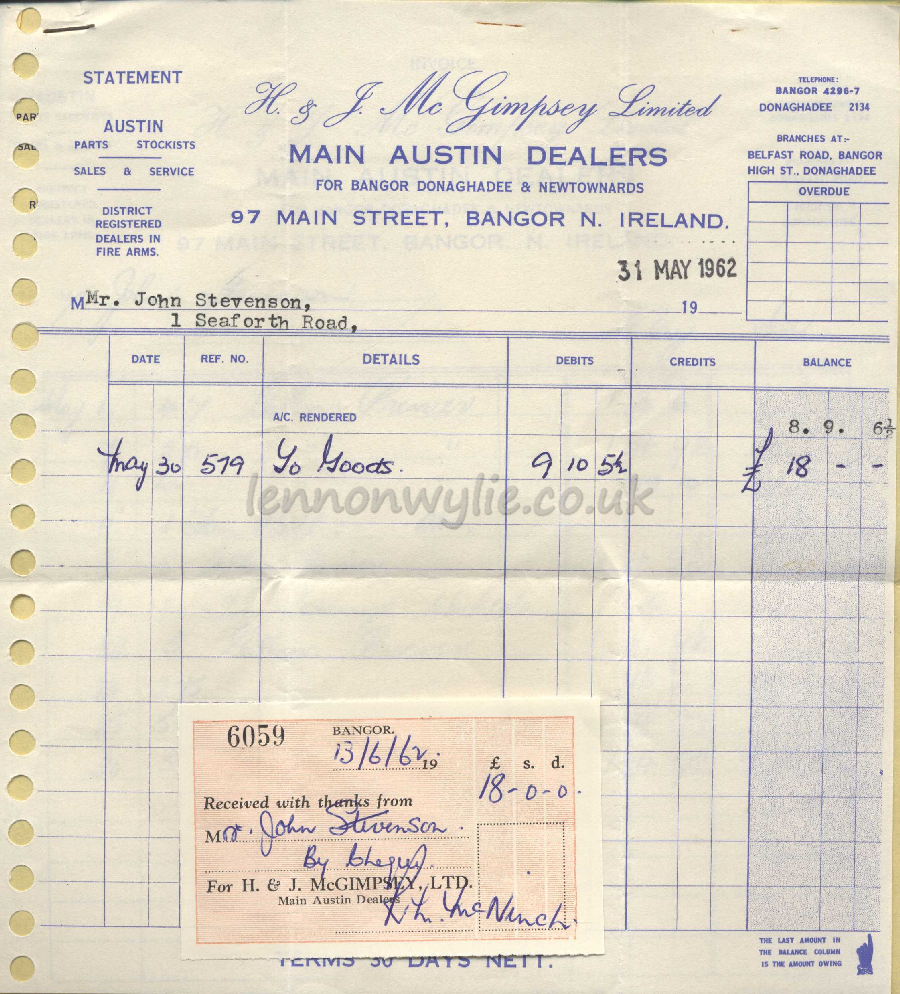 STATEMENT
AUSTIN
PARTS STOCKISTS
SALES & SERVICE
DISTRICT
REGISTERED
DEALERS IN
FIRE ARMS.
H. & J. McGimpsey Limited
MAIN AUSTIN DEALERS
FOR BANGOR DONAGHADEE & NEWTOWNARDS
97 MAIN STREET, BANGOR N. IRELAND.
TELEPHONE:
BANGOR 4296-7
DONAGHADEE 2134
BRANCHES AT:-
BELFAST ROAD, BANGOR
HIGH ST., DONAGHADEE
OVERDUE
31 MAY 1962
19
M Mr. John Stevenson,
1 Seaforth Road,
DATE REF. NO. DETAILS DEBITS CREDITS BALANCE
A/C. RENDERED 8. 9. 6½
May 30 579 To Goods. 9 10 5½ £ 18 - -
lennonwylie.co.uk
6059
BANGOR.
13/6/62 19
£ s. d.
18-0-0.
Received with thanks from
Mr. John Stevenson.
By Cheque.
For H. & J. McGIMPSEY, LTD.
Main Austin Dealers
McNinch.
TERMS 30 DAYS NETT.
THE LAST AMOUNT IN
THE BALANCE COLUMN
IS THE AMOUNT OWING
PAR
SAL
R